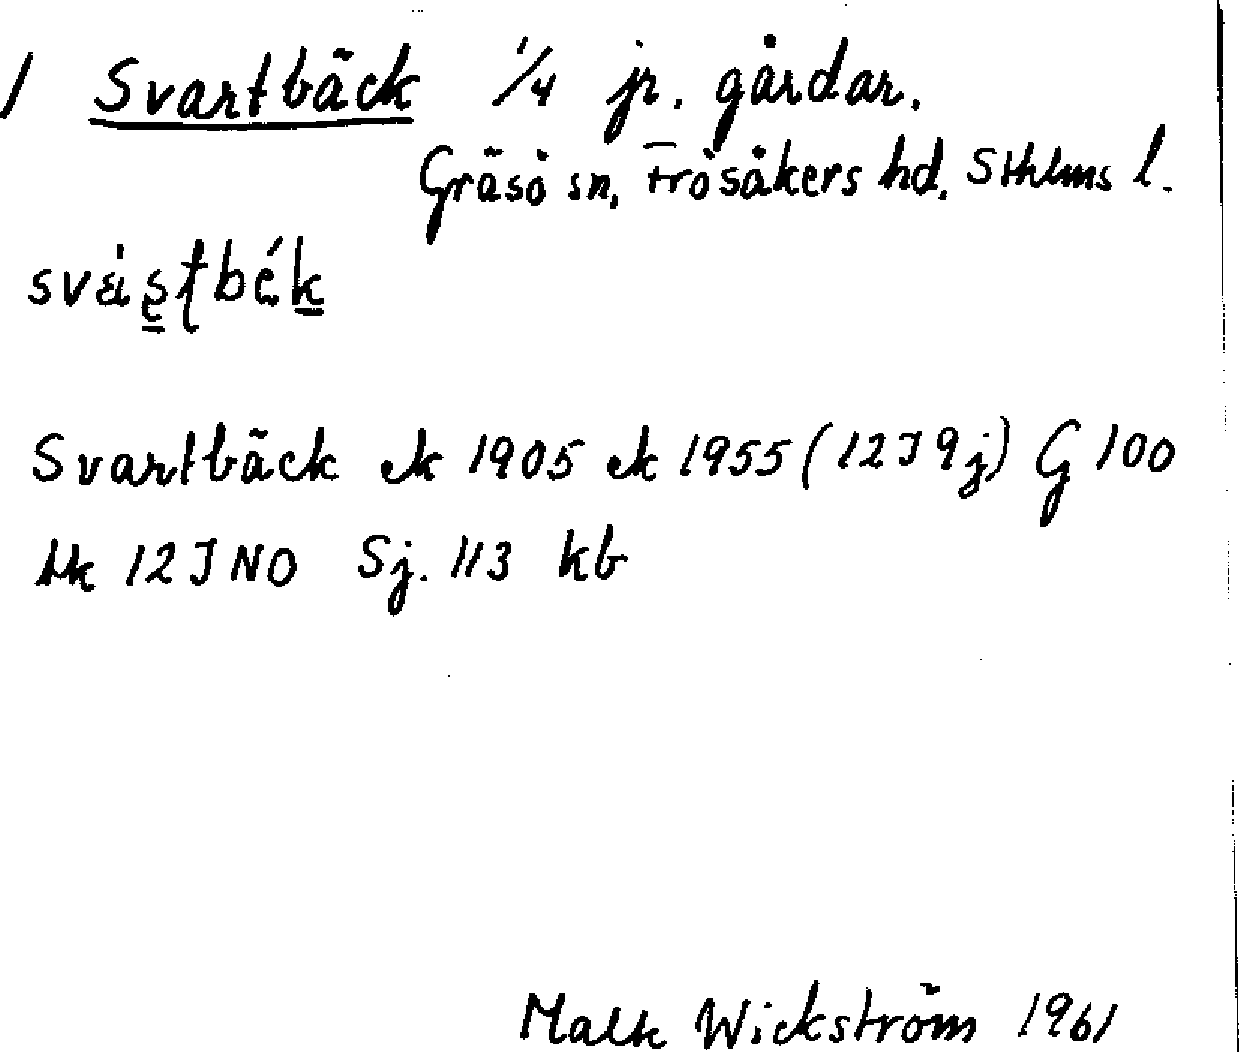 1 Svartbäck 1/4 jr. gårdar.
Gräsö sn, Frösåkers hd. Sthlms l.
Svartbäck ek 1905 ek 1955 (12J9j) G 100
12JNO Sj. 113 kb
Wickström 1961